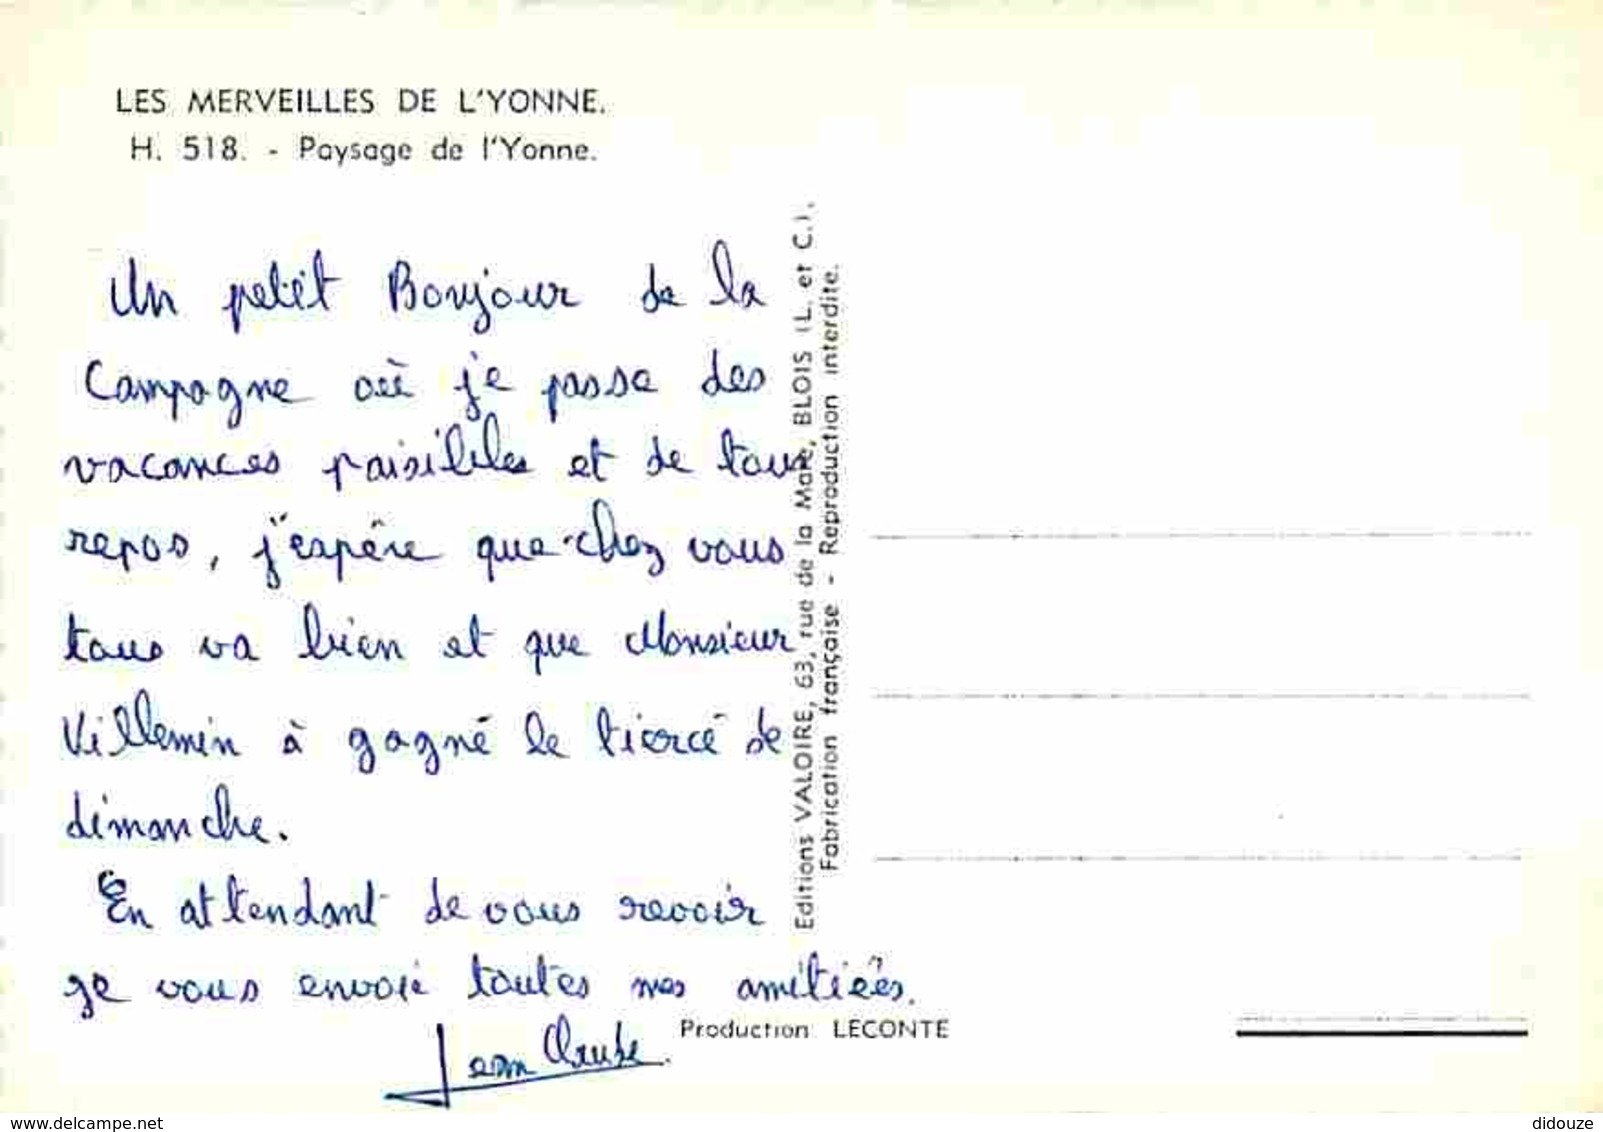 LES MERVEILLES DE L'YONNE.
H. 518. - Paysage de l'Yonne.
Un petit Bonjour de la
Campagne où je passe des
vacances paisibles et de tous
repos, j'espère que chez vous
tous va bien et que Monsieur
Villemin à gagné le tiercé de
dimanche.
En attendant de vous revoir
je vous envoie toutes mes amitiées.
Jean Claude.
Editions VALOIRE, 63, rue de la Mare, BLOIS (L. et C.).
Fabrication française - Reproduction interdite.
Production LECONTE
www.delcampe.net
didouze